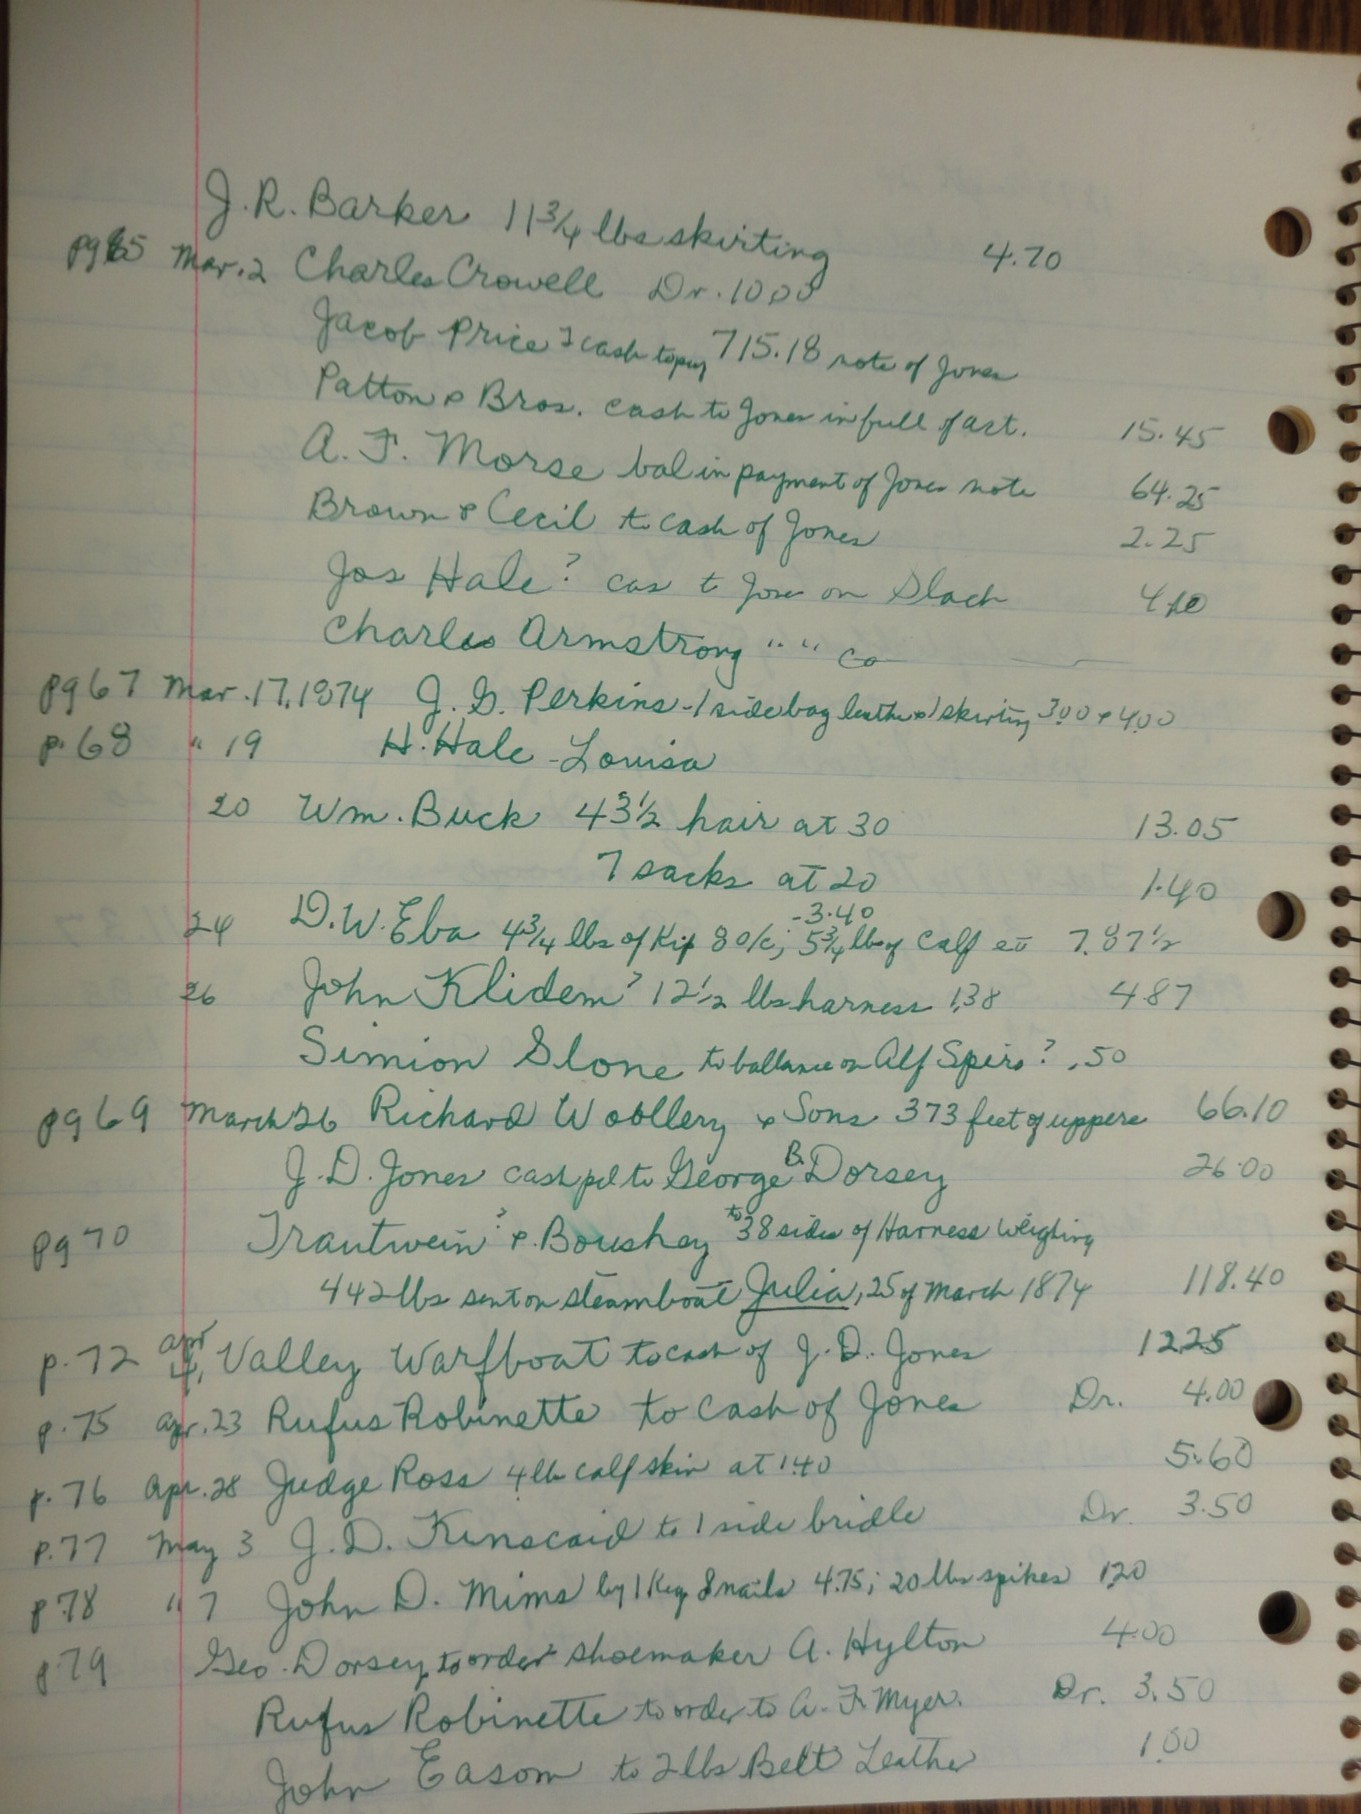 J. R. Barker 11 3/4 lbs skirting 4.70
pg 65 Mar. 2 Charles Crowell Dr. 10.00
Jacob Price ? cash to pay 715.18 note of Jones
Patton & Bros. cash to Jones in full of act. 15.45
A. F. Morse bal in payment of Jones note 64.25
Brown & Cecil to cash of Jones 2.25
Jos Hale ? cas t Jones on Slach
Charles Armstrong " " co
pg 67 Mar. 17, 1874 J. G. Perkins - 1 side bag leather & 1 skirting 3.00 & 4.00
p. 68 " 19 H. Hale - Louisa
20 Wm. Buck 43 1/2 hair at 30 13.05
7 sacks at 20 1.40
24 D. W. Eba 4 3/4 lbs of Kip 80/c; -3.40 5 3/4 lbs of Calf at 7.87 1/2
26 John Klidem ? 12 1/2 lbs harness 1.38 487
Simion Slone to ballance on Alf Spirs ? .50
pg 69 March 26 Richard Woollery & Sons 373 feet of uppers 66.10
J. D. Jones cash pd to George B. Dorsey 26.00
pg 70 Trautwein ? & Boushay to 38 sides of Harness weighing
442 lbs sent on steamboat Julia, 25 of March 1874 118.40
p. 72 apr 4, Valley Warfboat to cash of J. D. Jones 12.25
p. 75 apr. 23 Rufus Robinette to cash of Jones Dr. 4.00
p. 76 Apr. 28 Judge Ross 4 lb calf skin at 1.40 5.60
p. 77 May 3 J. D. Kinscaid to 1 side bridle Dr. 3.50
p 78 " 7 John D. Mims by 1 Keg 8 nails 4.75; 20 lbs spikes 1.20
p 79 Geo. Dorsey to order shoemaker A. Hylton 4.00
Rufus Robinette to order to A. F. Myer. Dr. 3.50
John Easom to 2 lbs Belt Leather 1.00